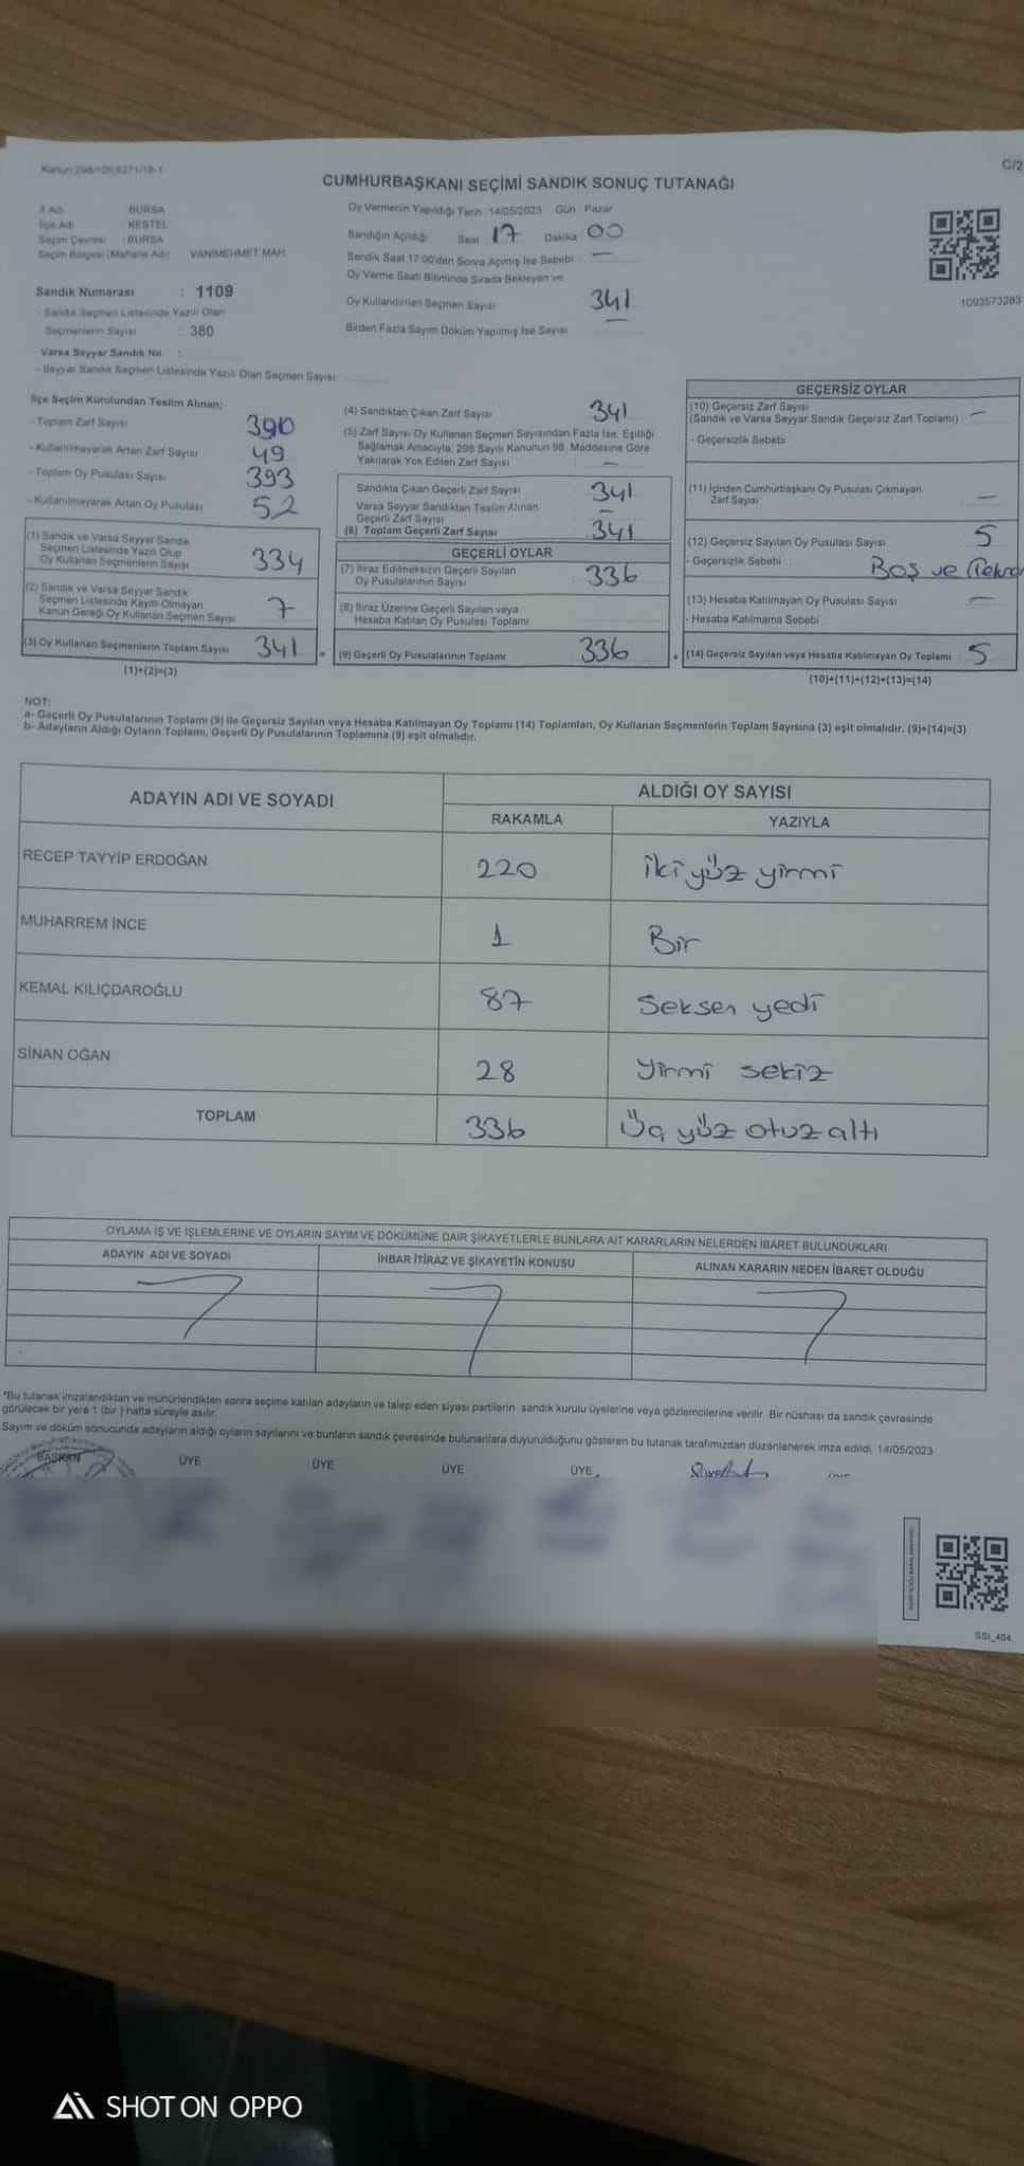 Kanun:298/106,6271/18-1
C/2
CUMHURBAŞKANI SEÇİMİ SANDIK SONUÇ TUTANAĞI
İl Adı BURSA
İlçe Adı KESTEL
Seçim Çevresi : BURSA
Seçim Bölgesi (Mahalle Adı) VANİMEHMET MAH.
Sandık Numarası : 1109
- Sandık Seçmen Listesinde Yazılı Olan
Seçmenlerin Sayısı : 380
Varsa Seyyar Sandık No :
- Seyyar Sandık Seçmen Listesinde Yazılı Olan Seçmen Sayısı
Oy Vermenin Yapıldığı Tarih : 14/05/2023 Gün Pazar
Sandığın Açıldığı Saat 17 Dakika 00
Sandık Saat 17:00'den Sonra Açılmış İse Sebebi —
Oy Verme Saati Bitiminde Sırada Bekleyen ve
Oy Kullandırılan Seçmen Sayısı 341
Birden Fazla Sayım Döküm Yapılmış İse Sayısı —
1093573283
İlçe Seçim Kurulundan Teslim Alınan;
- Toplam Zarf Sayısı 390
- Kullanılmayarak Artan Zarf Sayısı 49
- Toplam Oy Pusulası Sayısı 393
- Kullanılmayarak Artan Oy Pusulası 52
(1) Sandık ve Varsa Seyyar Sandık
Seçmen Listesinde Yazılı Olup
Oy Kullanan Seçmenlerin Sayısı 334
(2) Sandık ve Varsa Seyyar Sandık
Seçmen Listesinde Kayıtlı Olmayan
Kanun Gereği Oy Kullanan Seçmen Sayısı 7
(3) Oy Kullanan Seçmenlerin Toplam Sayısı 341
(1)+(2)=(3)
(4) Sandıktan Çıkan Zarf Sayısı 341
(5) Zarf Sayısı Oy Kullanan Seçmen Sayısından Fazla İse, Eşitliği
Sağlamak Amacıyla, 298 Sayılı Kanunun 98. Maddesine Göre
Yakılarak Yok Edilen Zarf Sayısı —
Sandıkta Çıkan Geçerli Zarf Sayısı 341
Varsa Seyyar Sandıktan Teslim Alınan
Geçerli Zarf Sayısı —
(6) Toplam Geçerli Zarf Sayısı 341
GEÇERLİ OYLAR
(7) İtiraz Edilmeksizin Geçerli Sayılan
Oy Pusulalarının Sayısı 336
(8) İtiraz Üzerine Geçerli Sayılan veya
Hesaba Katılan Oy Pusulası Toplamı
(9) Geçerli Oy Pusulalarının Toplamı 336
GEÇERSİZ OYLAR
(10) Geçersiz Zarf Sayısı
(Sandık ve Varsa Seyyar Sandık Geçersiz Zarf Toplamı) —
- Geçersizlik Sebebi
(11) İçinden Cumhurbaşkanı Oy Pusulası Çıkmayan
Zarf Sayısı —
(12) Geçersiz Sayılan Oy Pusulası Sayısı 5
- Geçersizlik Sebebi Boş ve
(13) Hesaba Katılmayan Oy Pusulası Sayısı —
- Hesaba Katılmama Sebebi
(14) Geçersiz Sayılan veya Hesaba Katılmayan Oy Toplamı 5
(10)+(11)+(12)+(13)=(14)
NOT:
a- Geçerli Oy Pusulalarının Toplamı (9) ile Geçersiz Sayılan veya Hesaba Katılmayan Oy Toplamı (14) Toplamları, Oy Kullanan Seçmenlerin Toplam Sayısına (3) eşit olmalıdır. (9)+(14)=(3)
b- Adayların Aldığı Oyların Toplamı, Geçerli Oy Pusulalarının Toplamına (9) eşit olmalıdır.
ADAYIN ADI VE SOYADI ALDIĞI OY SAYISI
RAKAMLA YAZIYLA
RECEP TAYYİP ERDOĞAN 220 İki yüz yirmi
MUHARREM İNCE 1 Bir
KEMAL KILIÇDAROĞLU 87 Seksen yedi
SİNAN OĞAN 28 Yirmi sekiz
TOPLAM 336 Üç yüz otuz altı
OYLAMA İŞ VE İŞLEMLERİNE VE OYLARIN SAYIM VE DÖKÜMÜNE DAİR ŞİKAYETLERLE BUNLARA AİT KARARLARIN NELERDEN İBARET BULUNDUKLARI
ADAYIN ADI VE SOYADI İHBAR İTİRAZ VE ŞİKAYETİN KONUSU ALINAN KARARIN NEDEN İBARET OLDUĞU
*Bu tutanak imzalandıktan ve mühürlendikten sonra seçime katılan adayların ve talep eden siyasi partilerin sandık kurulu üyelerine veya gözlemcilerine verilir. Bir nüshası da sandık çevresinde
görülecek bir yere 1 (bir) hafta süreyle asılır.
Sayım ve döküm sonucunda adayların aldığı oyların sayılarını ve bunların sandık çevresinde bulunanlara duyurulduğunu gösteren bu tutanak tarafımızdan düzenlenerek imza edildi. 14/05/2023
BAŞKAN ÜYE ÜYE ÜYE ÜYE
SSI_404
SHOT ON OPPO